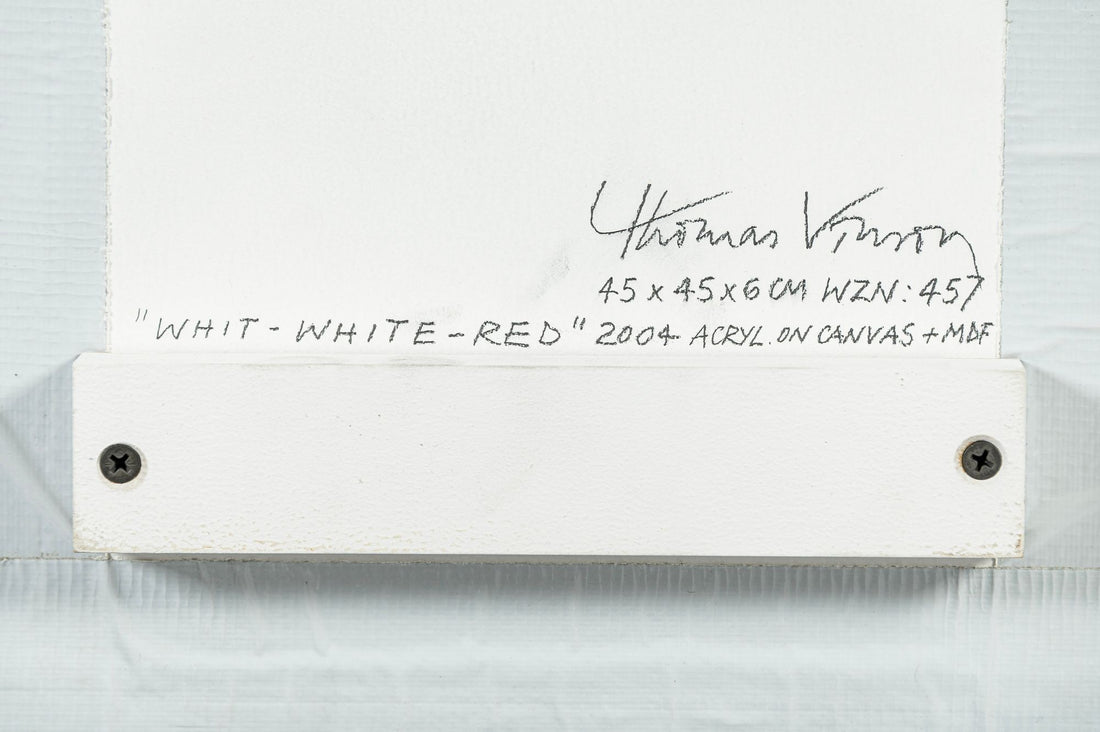 Thomas Vinson
45 x 45 x 6 CM WZN: 457
"WHIT - WHITE - RED" 2004 ACRYL. ON CANVAS + MDF